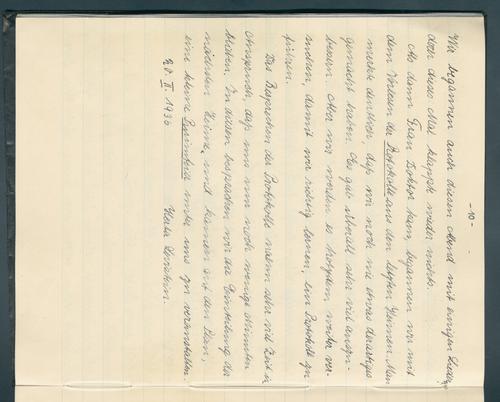 - 10 -
Wir begannen auch diesen Abend mit einigen Liedern,
doch dieses Mal klappte wieder nichts.
Als dann Frau Doktor kam, begannen wir mit
dem Vorlesen der Protokolle aus den letzten Heimen. Man
merkte deutlich, dass wir noch nie etwas derartiges
gemacht haben. Es gab überall sehr viel auszu-
bessern. Aber wir werden es trotzdem weiter ver-
suchen, damit wir richtig lernen, ein Protokoll zu
führen.
Das Besprechen der Protokolle nahm sehr viel Zeit in
Anspruch, dass uns nun noch wenige Minuten
blieben. In diesen besprachen wir die Einteilung der
nächsten Heime, und kamen auf den Plan,
eine kleine unter uns zu veranstalten.
28. II 1936 Herta